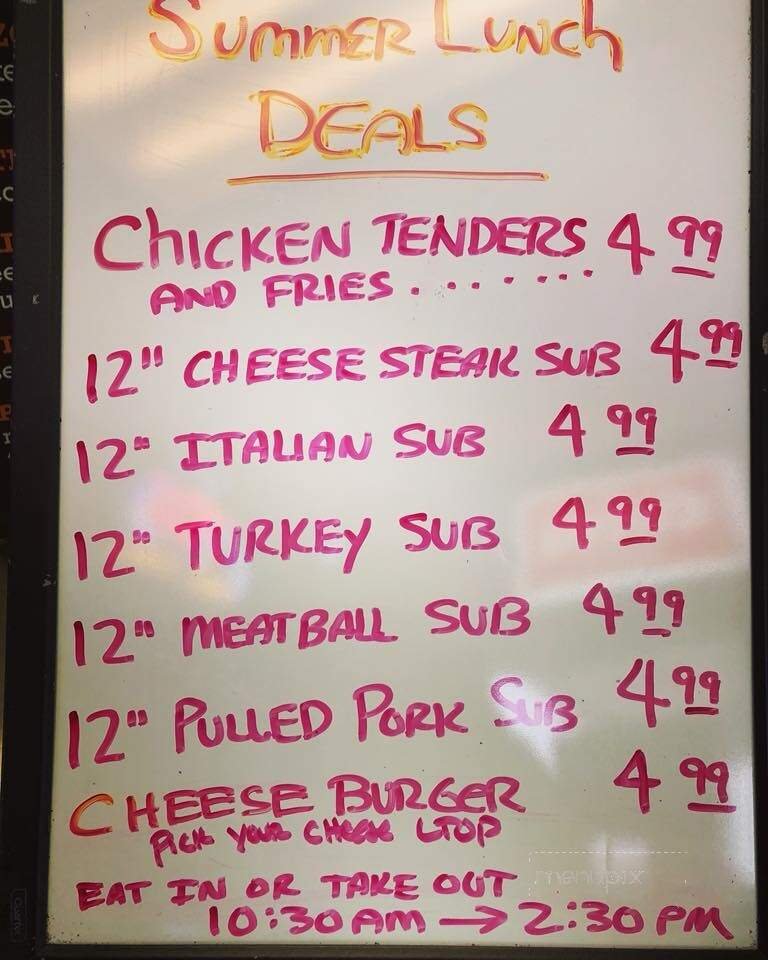 Summer Lunch
DEALS
CHICKEN TENDERS 4 99
AND FRIES . . . . . . . .
12" CHEESE STEAK SUB 4 99
12" ITALIAN SUB 4 99
12" TURKEY SUB 4 99
12" MEATBALL SUB 4 99
12" PULLED PORK SUB 4 99
CHEESE BURGER 4 99
PICK YOUR CHEESE &TOP
EAT IN OR TAKE OUT
10:30 AM → 2:30 PM
menupix